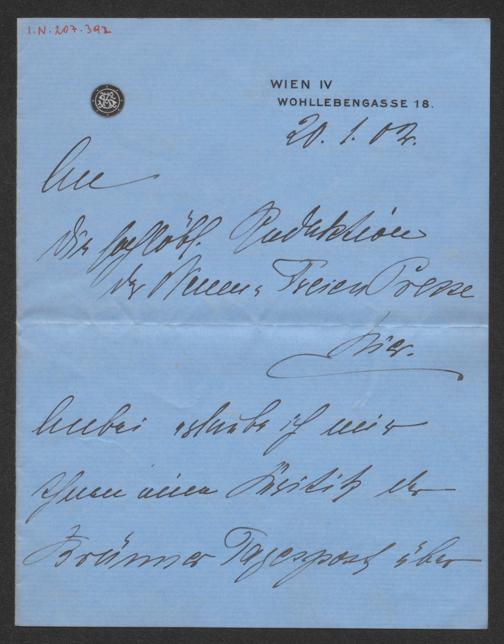 I.N. 207.392
WIEN IV
WOHLLEBENGASSE 18.
20. 1. 02.
An
die hochlöbl. Redaktion
der Neuen Freien Presse
Hier.
Anbei erlaube ich mir
Ihnen eine Kritik der
Brünner Tagespost über